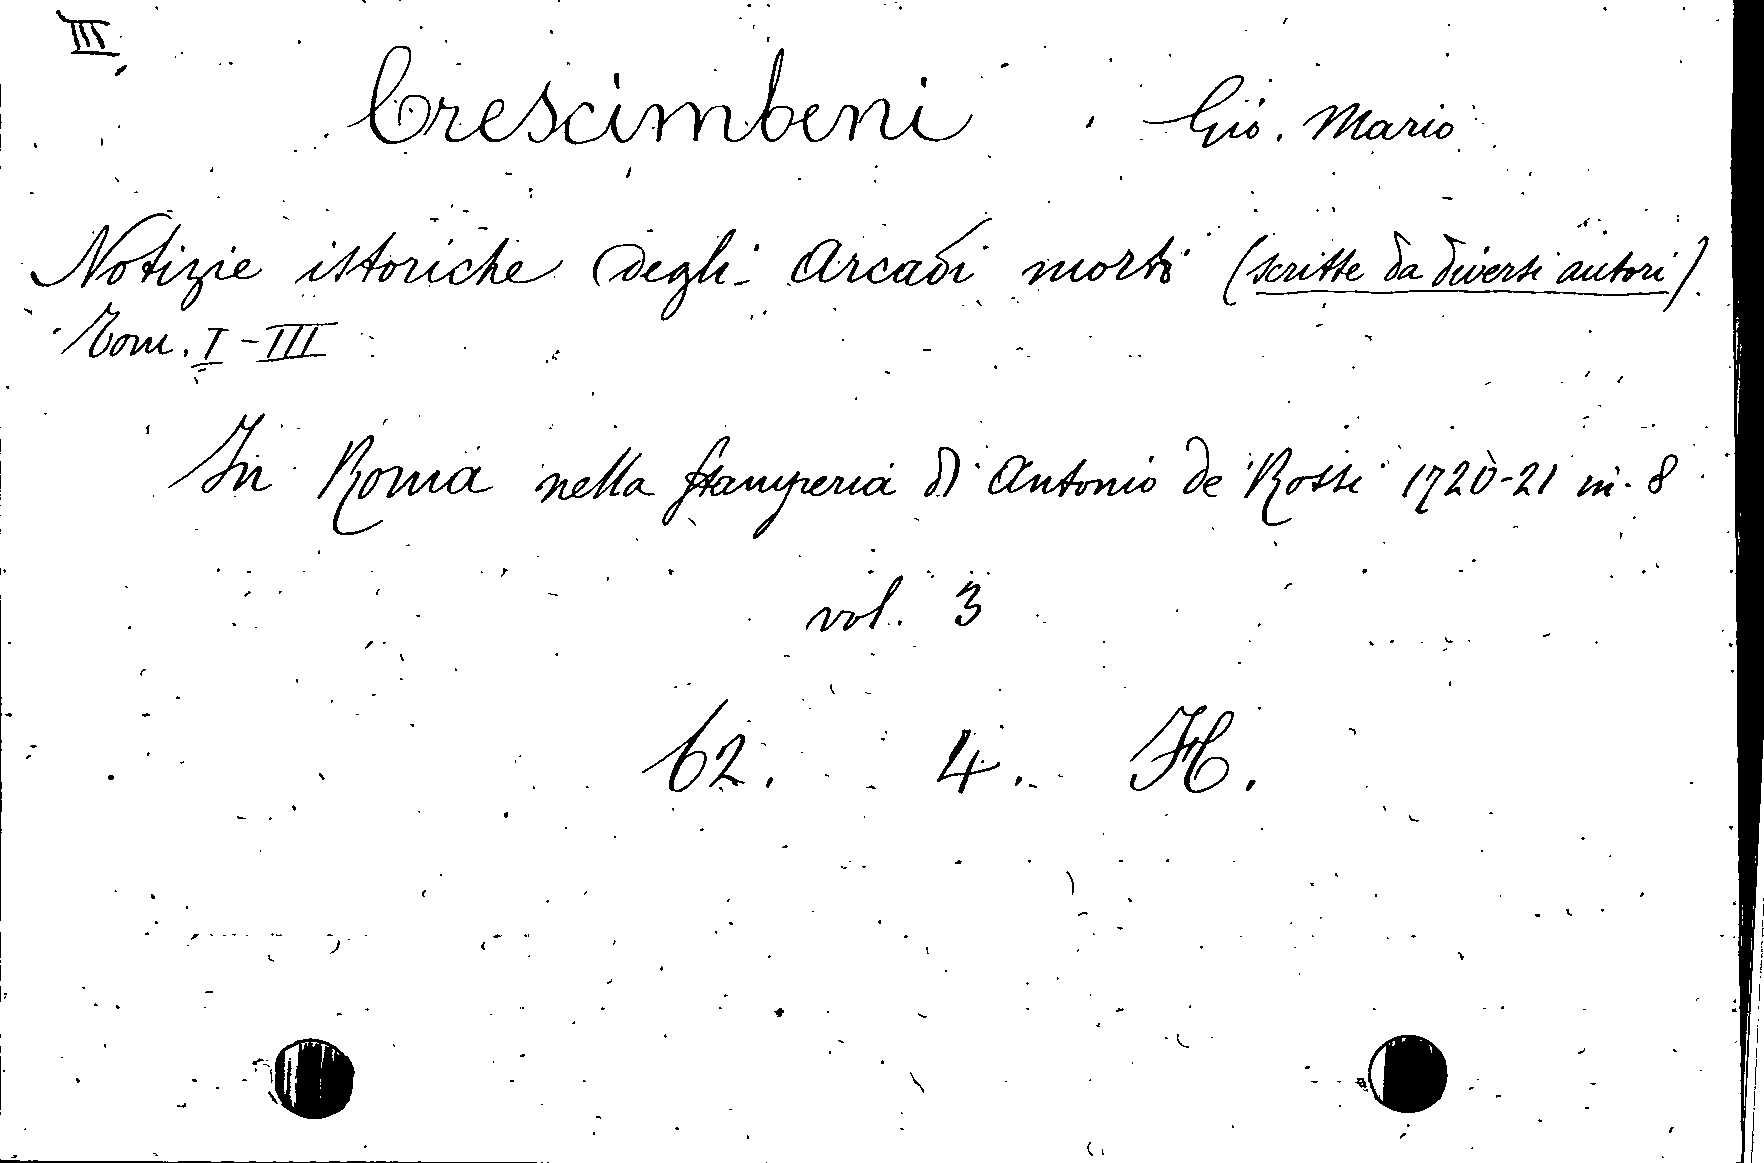 III
Crescimbeni Gio. Mario
Notizie istoriche degli Arcadi morti (scritte da diversi autori).
Tom. I-III
In Roma nella stamperia di Antonio de Rossi 1720-21 in-8
vol. 3
62. 4. H.